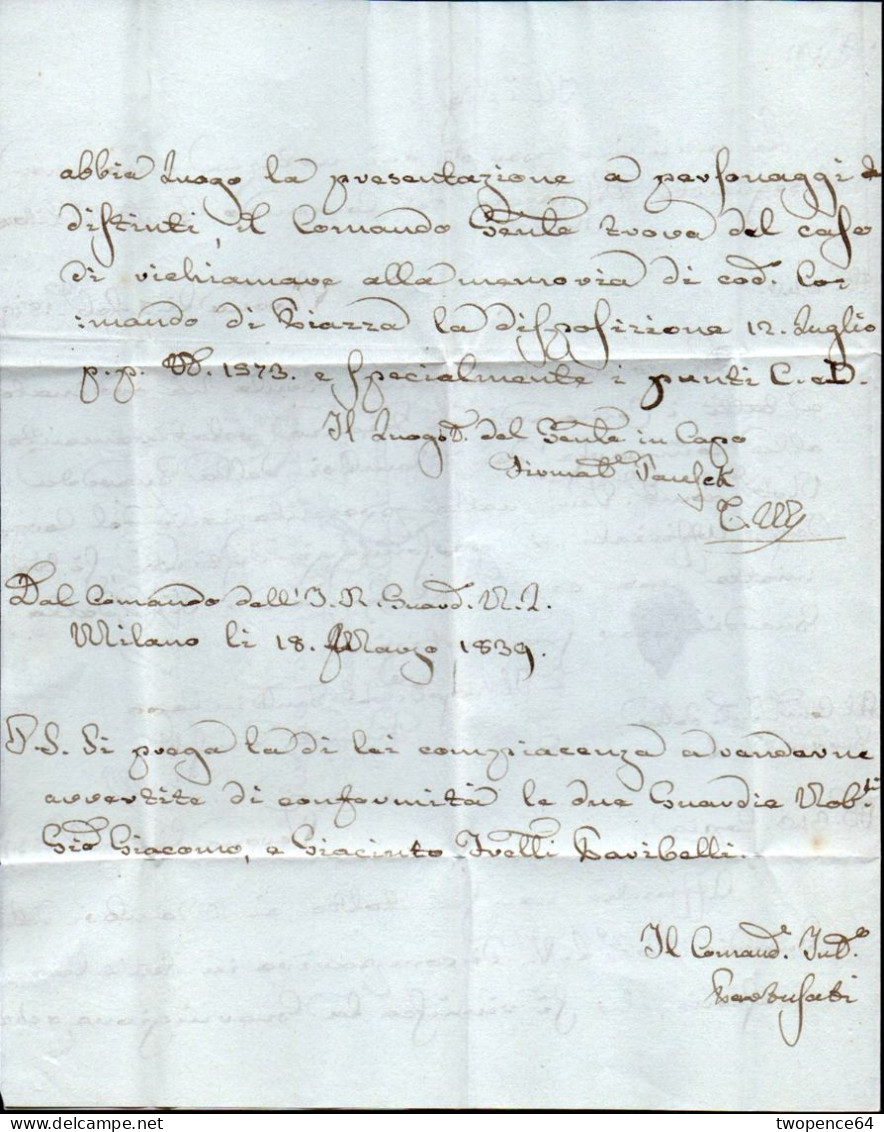 abbia luogo la presentazione a personaggi
distinti, il Comando Genle trova del caso
di richiamare alla memoria di cod. Co:
:mando di Piazza la disposizione 12. luglio
p.p. N. 1573. e specialmente i punti C. e D.
Il Luogot. del Genle in Capo
Firmat.
Dal Comando dell'I. R. Guard. N. L.
Milano li 18. Marzo 1839.
P.S. Si prega la di lei compiacenza a renderne
avvertite di conformità le due Guardie Nob.li
Gio Giacomo, e Giacinto Fratelli Paribelli.
Il Comand.e Ind.o
twopence64